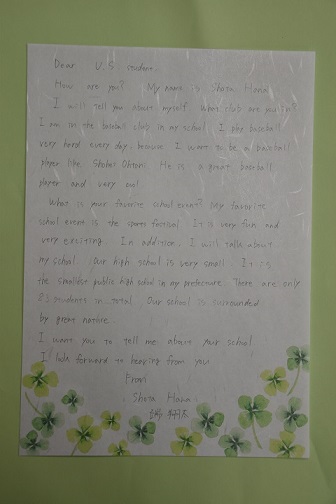 Dear U.S student.
How are you? My name is Shota
I will tell you about myself. What club are you in?
I am in the baseball club in my school. I play baseball
very hard every day because I want to be a baseball
player like Shohei Ohtani. He is a great baseball
player and very cool.
What is your favorite school event? My favorite
school event is the sports festival. It is very fun and
very exciting. In addition, I will talk about
my school. Our high school is very small. It is
the smallest public high school in my prefecture. There are only
students in total. Our school is surrounded
by great nature.
I want you to tell me about your school.
I look forward to hearing from you.
From
Shota